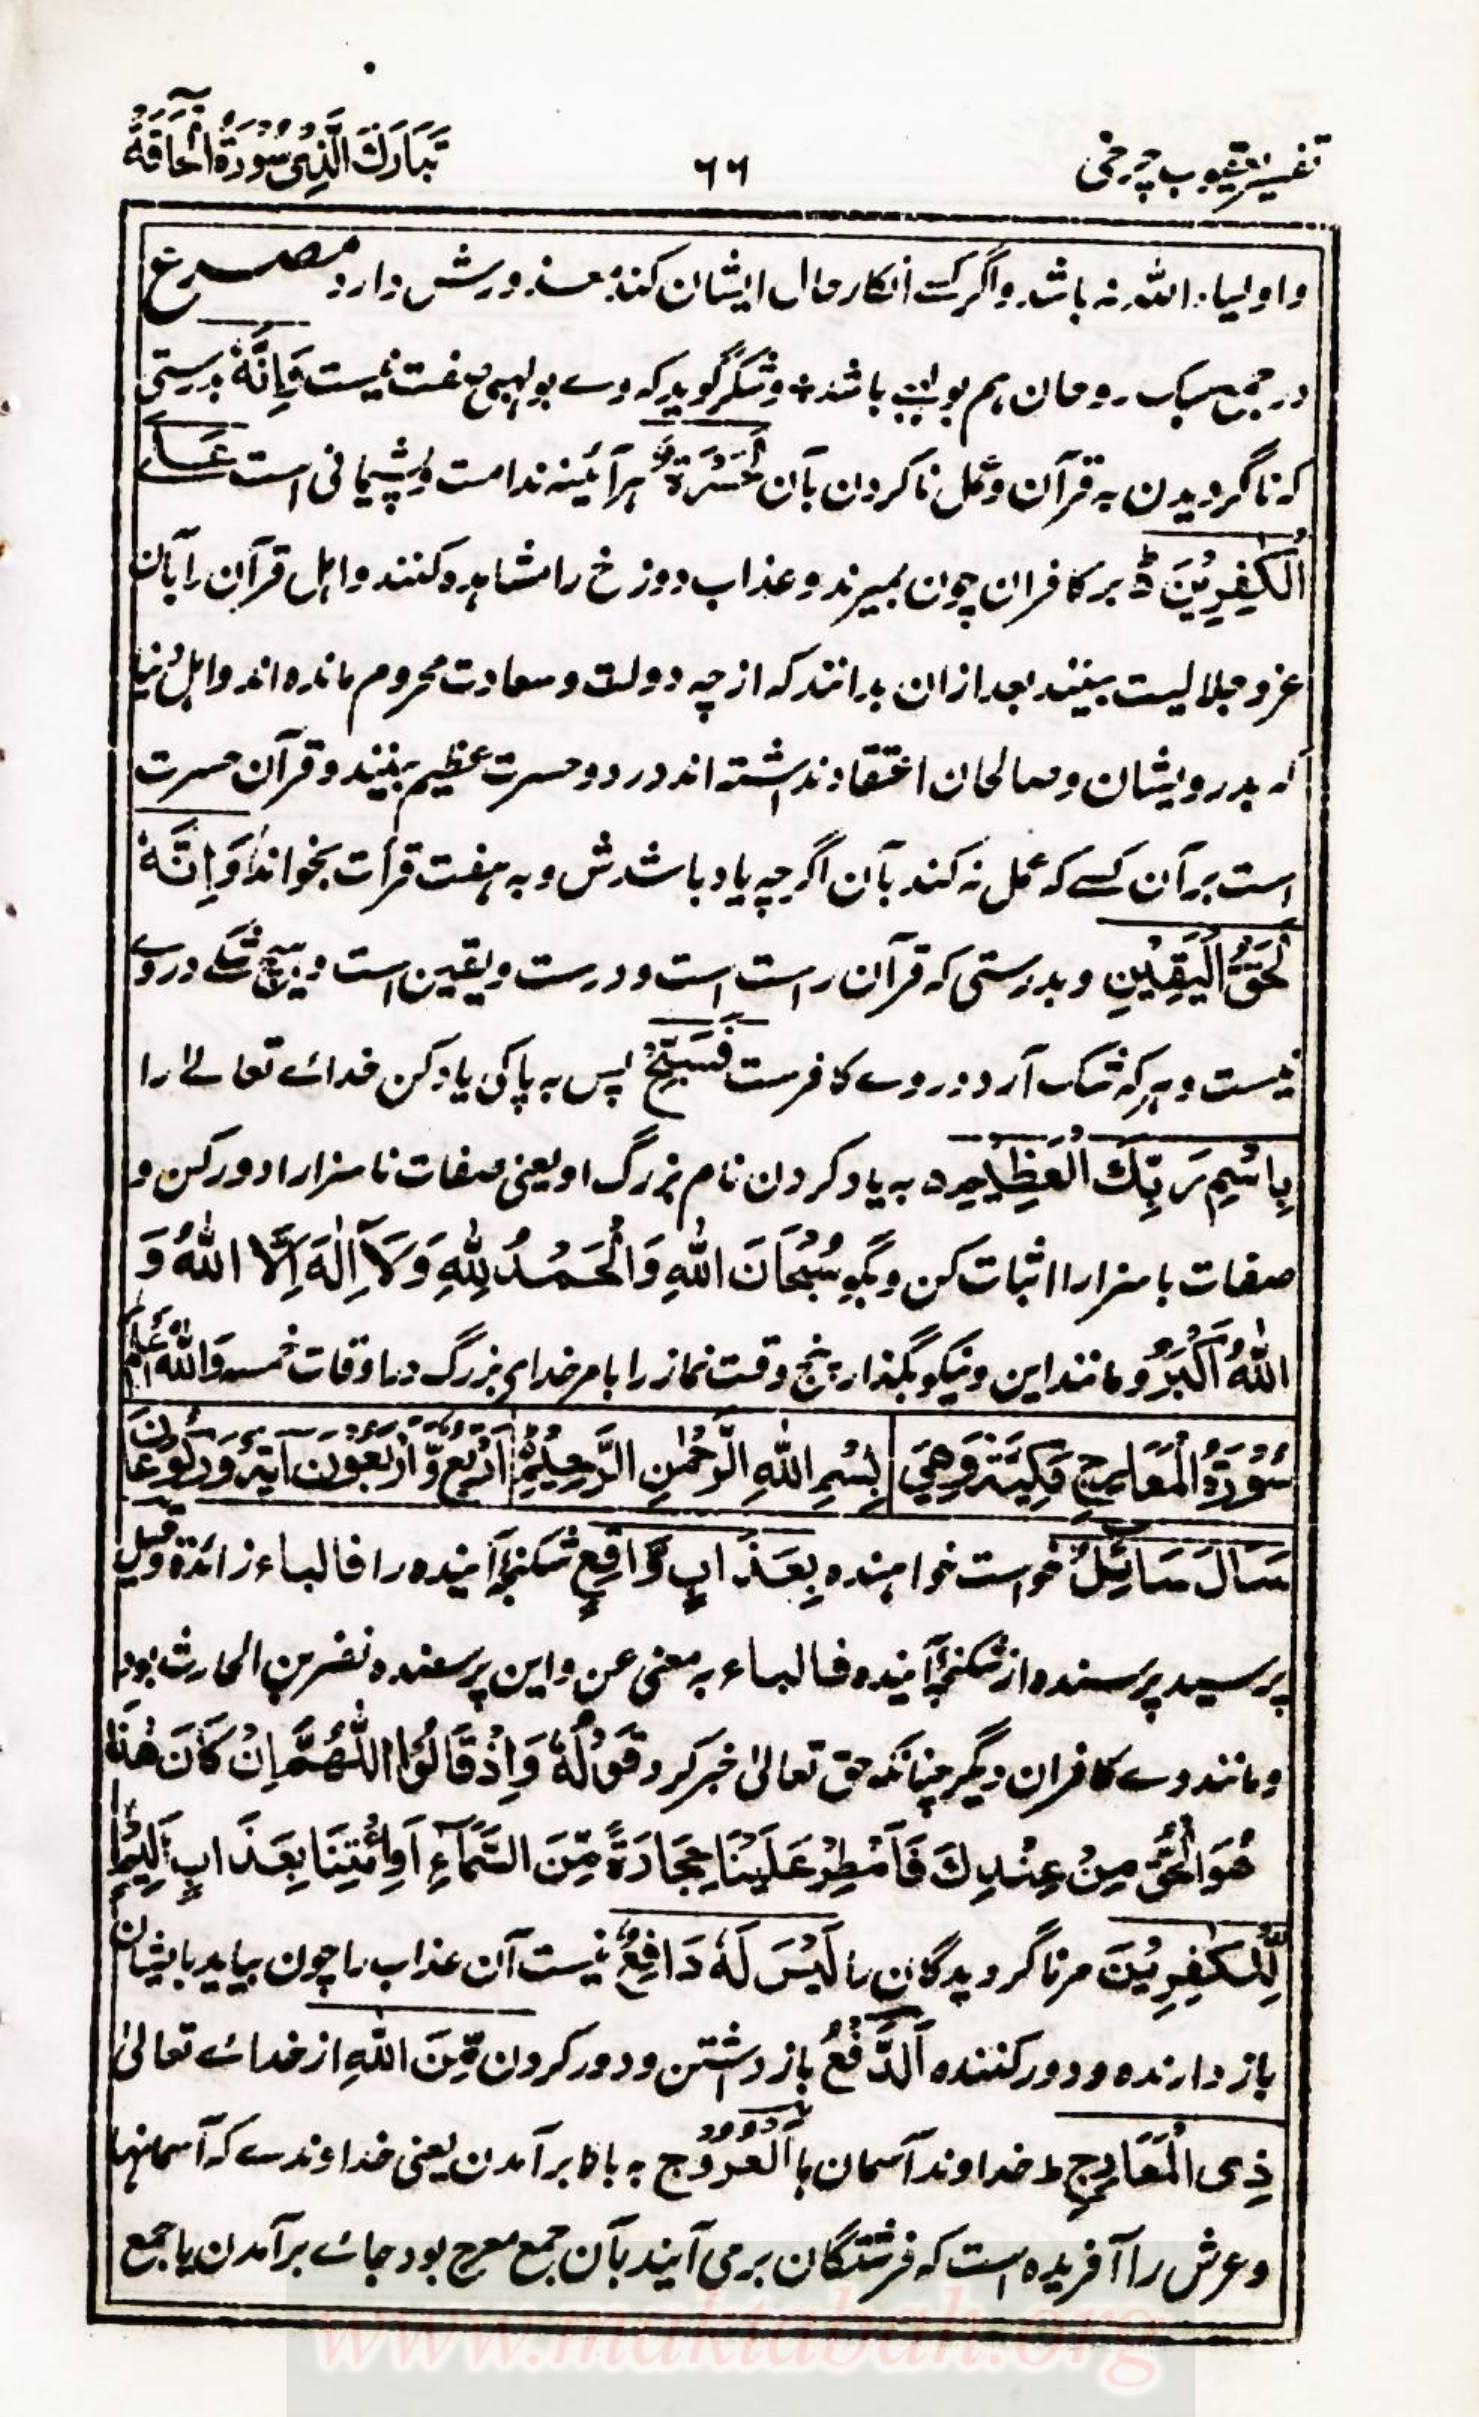 تفسیر یعقوب چرخی
۶۶
تَبَارَكَ الَّذِیْ سُوْرَةُ الْحَاقَّةُ
واولیاء اللہ نہ باشد واگر کسے انکار حال ایشان کند معذورش دارد مصرع
در جمع سبک روحان ہم بولہبے باشد وشکر گوید کہ وے بولہبی صفت نیست وَاِنَّهٗ بدرستی
کہ ناگرویدن بہ قرآن وعمل ناکردن بآن لَحَسْرَةٌ ہرآئینہ ندامت وپشیمانی است عَلَے
الْكٰفِرِیْنَ بر کافران چون بمیرند وعذاب دوزخ را مشاہدہ کنند واہل قرآن را بآن
عز وجلالیت بینند بعد ازان بدانند کہ از چہ دولت وسعادت محروم ماندہ اند واہل دنیا
کہ بدرویشان وصالحان اعتقاد نداشتہ اند درد وحسرت عظیم بینند وقرآن حسرت
است بر آن کسے کہ عمل نہ کند بآن اگرچہ یاد باشدش وبہ ہفت قرأت بخواند وَاِنَّهٗ
لَحَقُّ الْیَقِیْنِ وبدرستی کہ قرآن راست است ودرست ویقین است وہیچ شکے در وے
نیست وہر کہ شک آرد در وے کافرست فَسَبِّحْ پس بہ پاکی یاد کن خدائے تعالے را
بِاسْمِ رَبِّكَ الْعَظِیْمِ بہ یاد کردن نام بزرگ او یعنی صفات ناسزا را دور کن و
صفات باسزا را اثبات کن وبگو سُبْحَانَ اللّٰهِ وَالْحَمْدُ لِلّٰهِ وَلَآ اِلٰهَ اِلَّا اللّٰهُ وَ
اللّٰهُ اَكْبَرُ ومانند این ونیکو بگذار پنج وقت نماز را بامر خدای بزرگ در اوقات خمسہ وَاللّٰهُ اَعْلَمُ
سُوْرَةُ الْمَعَارِجِ مَكِّیَّةٌ وَهِیَ بِسْمِ اللّٰهِ الرَّحْمٰنِ الرَّحِیْمِ اَرْبَعٌ وَّاَرْبَعُوْنَ اٰیَةً وَرُكُوْعَانِ
سَاَلَ سَآئِلٌ خواست خواہندہ بِعَذَابٍ وَّاقِعٍ شکنجہ آیندہ را فالباء زائدة وقیل
پرسید پرسندہ از شکنجہ آیندہ فالباء بہ معنی عن واین پرسندہ نضر بن الحارث بود
ومانند وے کافران دیگر چنانکہ حق تعالیٰ خبر کرد قَوْلُهٗ وَاِذْ قَالُوا اللّٰهُمَّ اِنْ كَانَ هٰذَا
هُوَ الْحَقَّ مِنْ عِنْدِكَ فَاَمْطِرْ عَلَیْنَا حِجَارَةً مِّنَ السَّمَآءِ اَوِ ائْتِنَا بِعَذَابٍ اَلِیْمٍ
لِّلْكٰفِرِیْنَ مر ناگرویدگان را لَیْسَ لَهٗ دَافِعٌ نیست آن عذاب را چون بیاید بایشان
باز دارندہ ودور کنندہ اَلدَّفْعُ باز داشتن ودور کردن مِّنَ اللّٰهِ از خدائے تعالیٰ
ذِی الْمَعَارِجِ ط خداوند آسمان ہا اَلْعُرُوْجُ بہ بالا برآمدن یعنی خداوندے کہ آسمانہا
وعرش را آفریدہ است کہ فرشتگان برمی آیند بآن جمع معرج بود جائے برآمدن یا جمع
www.maktabah.org